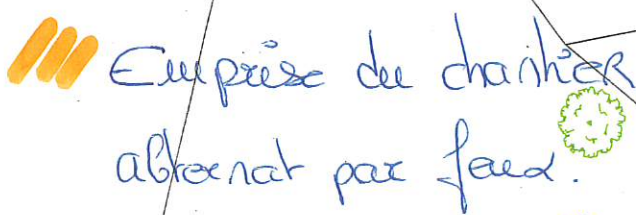 Emprise du chantier
alternat par feux.